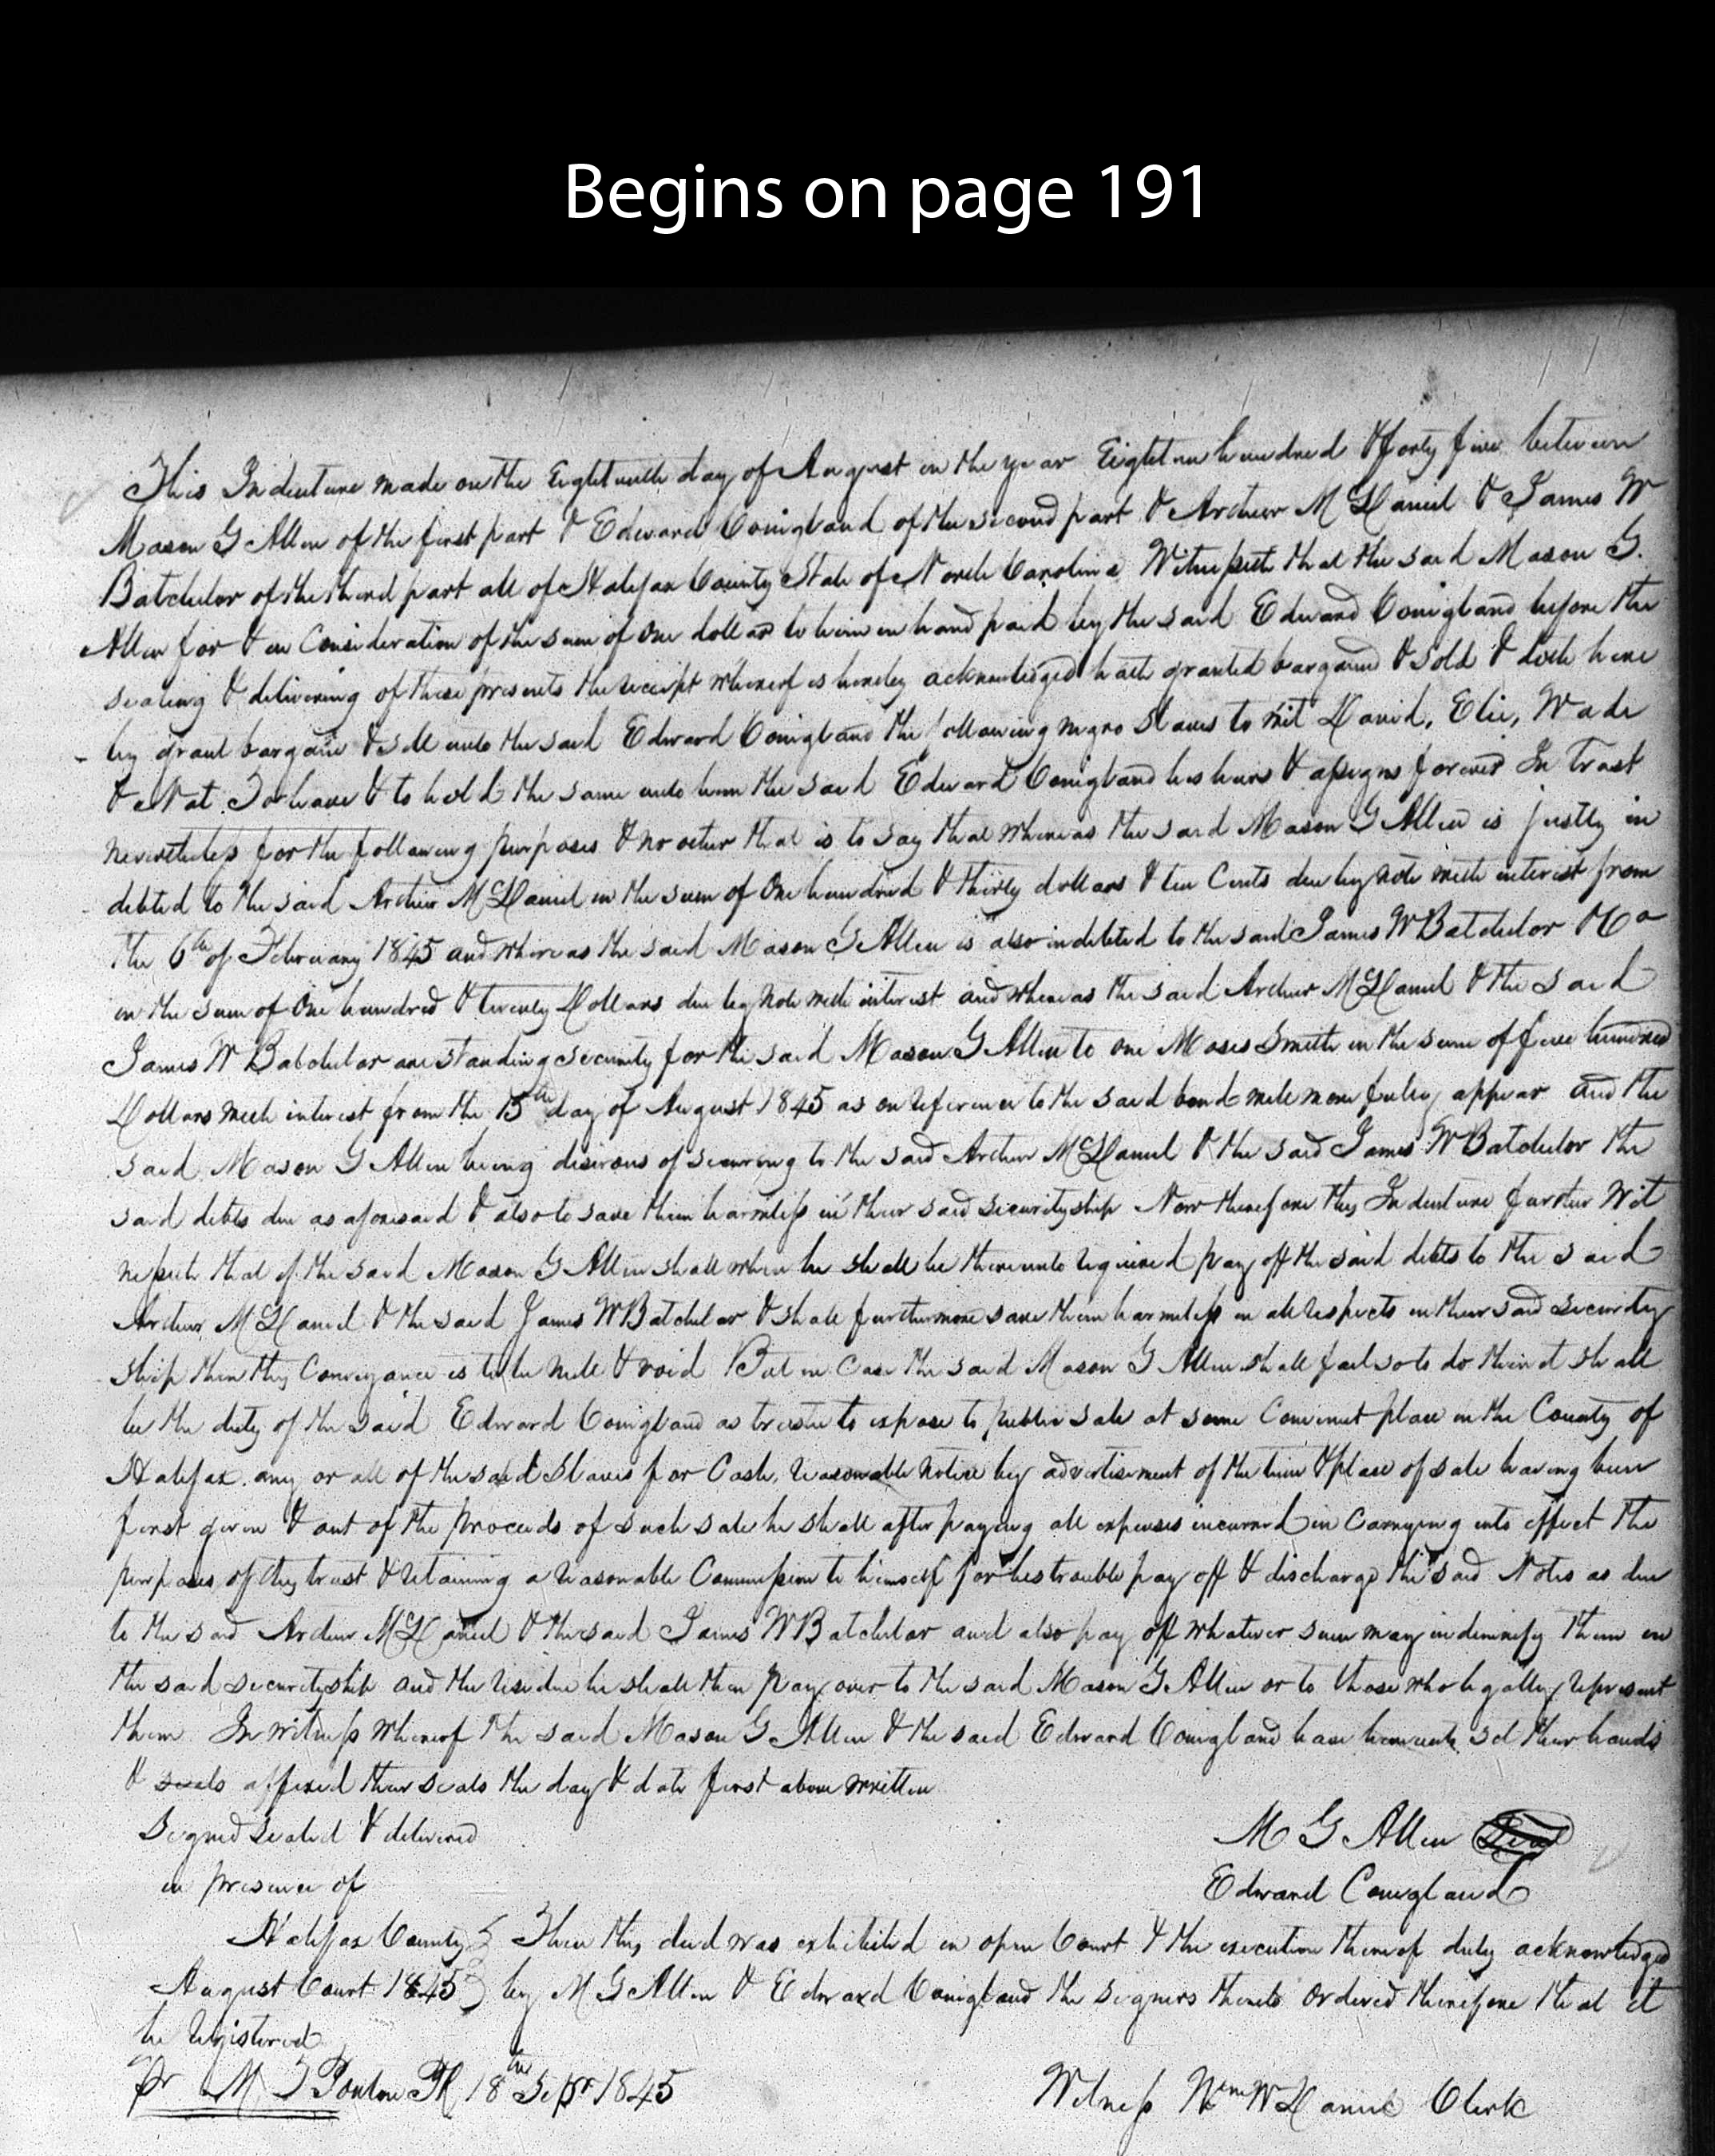 Begins on page 191
This Indenture made on the Eighteenth day of August in the year Eighteen hundred & forty five between
Mason G Allen of the first part & Edward Conigland of the second part & Archer McDaniel & James W
Batchelor of the third part all of Halifax County State of North Carolina Witnesseth that the said Mason G.
Allen for & in Consideration of the sum of One dollar to him in hand paid by the said Edward Conigland before the
sealing & delivering of these presents the receipt whereof is hereby acknowledged hath granted bargained & sold & doth here
by grant bargain & sell unto the said Edward Conigland the following negro Slaves to wit David, Eli, Wade
& Nat To have & to hold the same unto him the said Edward Conigland his heirs & assigns forever In trust
nevertheless for the following purposes & no other that is to say that whereas the said Mason G Allen is justly in
debted to the said Archer McDaniel in the sum of One hundred & thirty dollars & ten Cents due by note with interest from
the 6th of February 1845 and whereas the said Mason G Allen is also indebted to the said James W Batchelor & Co
in the sum of One hundred & twenty Dollars due by note with interest and whereas the said Archer McDaniel & the said
James W Batchelor are standing security for the said Mason G Allen to one Moses Smith in the sum of five hundred
Dollars with interest from the 15th day of August 1845 as on reference to the said bond will more fully appear and the
said Mason G Allen being desirous of securing to the said Archer McDaniel & the said James W Batchelor the
said debts due as aforesaid & also to save them harmless in their said securityship Now therefore this Indenture further Wit
nesseth that if the said Mason G Allen shall when he shall be thereunto required pay off the said debts to the said
Archer McDaniel & the said James W Batchelor & shall furthermore save them harmless in all respects in their said security
ship then this Conveyance is to be null & void But in Case the said Mason G Allen shall fail so to do then it shall
be the duty of the said Edward Conigland as trustee to expose to public sale at some Convenient place in the County of
Halifax any or all of the said Slaves for Cash, reasonable notice by advertisement of the time & place of sale having been
first given & out of the proceeds of such sale he shall after paying all expenses incurred in Carrying into effect the
purposes of this trust & retaining a reasonable Commission to himself for his trouble pay off & discharge the said Notes as due
to the said Archer McDaniel & the said James W Batchelor and also pay off whatever sum may indemnify them in
the said securityship and the residue he shall then pay over to the said Mason G Allen or to those who legally represent
them In witness whereof the said Mason G Allen & the said Edward Conigland have hereunto set their hands
& seals affixed their seals the day & date first above written
Signed Sealed & delivered
in presence of
M G Allen Seal
Edward Conigland
Halifax County Then this deed was exhibited in open Court & the execution thereof duly acknowledged
August Court 1845 by M G Allen & Edward Conigland the signers thereto Ordered therefore that it
be Registered
Pr M T Ponton PR 18th Sepr 1845
Witness Wm W Daniel Clerk